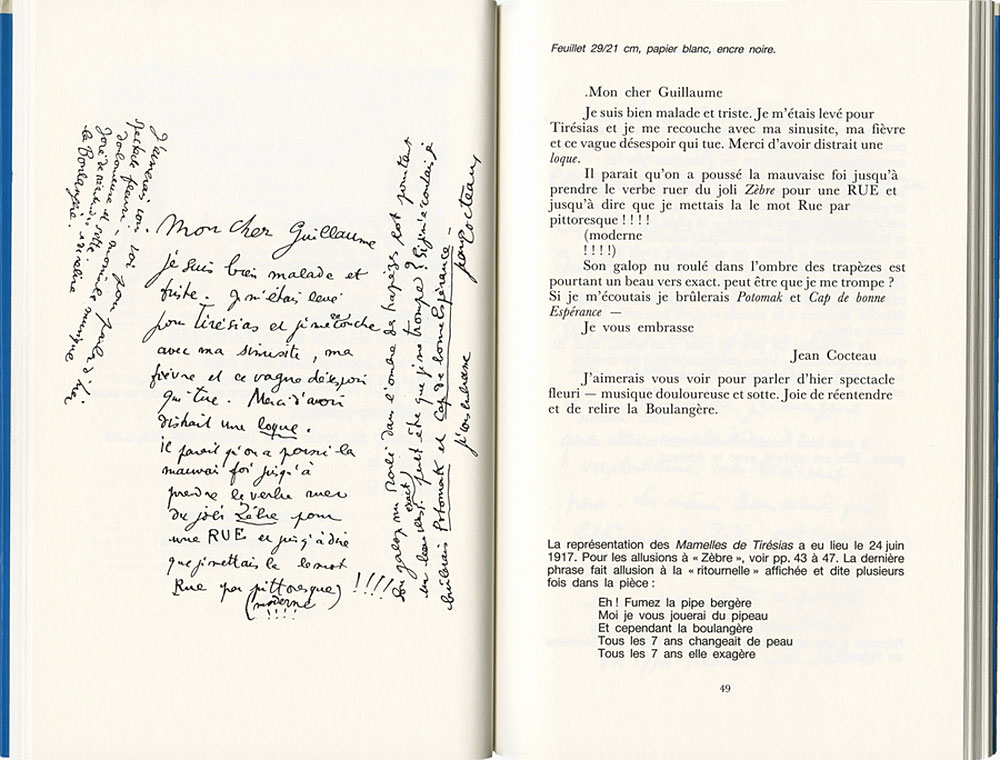 Mon cher Guillaume
je suis bien malade et
triste. Je m'étais levé
pour Tirésias et je me recouche
avec ma sinusite, ma
fièvre et ce vague désespoir
qui tue. Merci d'avoir
distrait une loque.
il parait qu'on a poussé la
mauvaise foi jusqu'à
prendre le verbe ruer
du joli Zèbre pour
une RUE et jusqu'à dire
que je mettais le le mot
Rue par pittoresque) !!!!
(moderne
!!!!
Son galop nu roulé dans l'ombre des trapèzes est pourtant
un beau vers exact. peut être que je me trompe? Si je m'écoutais je
brûlerais Potomak et Cap de bonne Espérance –
je vous embrasse
Jean Cocteau
J'aimerais vous voir pour parler d'hier
spectacle fleuri – musique
douloureuse et sotte.
Joie de réentendre et de relire
la Boulangère.
Feuillet 29/21 cm, papier blanc, encre noire.
.Mon cher Guillaume
Je suis bien malade et triste. Je m'étais levé pour
Tirésias et je me recouche avec ma sinusite, ma fièvre
et ce vague désespoir qui tue. Merci d'avoir distrait une
loque.
Il parait qu'on a poussé la mauvaise foi jusqu'à
prendre le verbe ruer du joli Zèbre pour une RUE et
jusqu'à dire que je mettais la le mot Rue par
pittoresque ! ! ! !
(moderne
! ! ! !)
Son galop nu roulé dans l'ombre des trapèzes est
pourtant un beau vers exact. peut être que je me trompe ?
Si je m'écoutais je brûlerais Potomak et Cap de bonne
Espérance —
Je vous embrasse
Jean Cocteau
J'aimerais vous voir pour parler d'hier spectacle
fleuri — musique douloureuse et sotte. Joie de réentendre
et de relire la Boulangère.
La représentation des Mamelles de Tirésias a eu lieu le 24 juin
1917. Pour les allusions à « Zèbre », voir pp. 43 à 47. La dernière
phrase fait allusion à la « ritournelle » affichée et dite plusieurs
fois dans la pièce :
Eh ! Fumez la pipe bergère
Moi je vous jouerai du pipeau
Et cependant la boulangère
Tous les 7 ans changeait de peau
Tous les 7 ans elle exagère
49